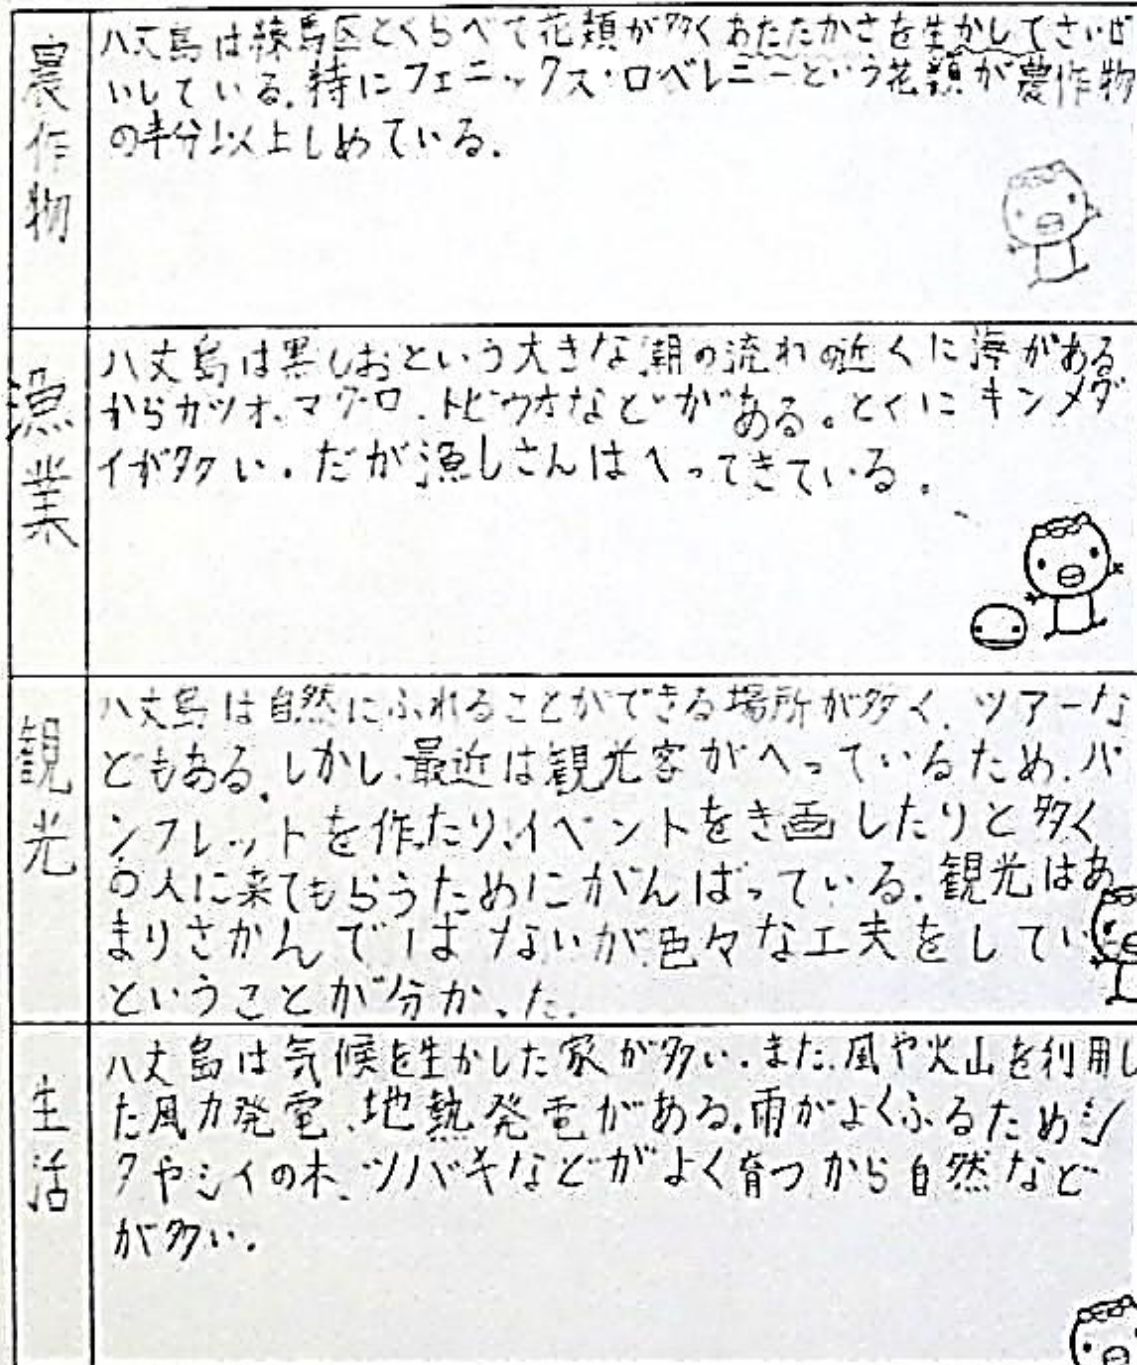 農作物
八丈島は練馬区とくらべて花類が多くあたたかさを生かしてさいば
いしている。特にフェニックス・ロベレニーという花類が農作物
の半分以上しめている。
漁業
八丈島は黒しおという大きな潮の流れの近くに海がある
からカツオ、マグロ、トビウオなどがある。とくにキンメダ
イが多い。だが漁しさんはへってきている。
観光
八丈島は自然にふれることができる場所が多く、ツアーな
どもある。しかし、最近は観光客がへっているため、パ
ンフレットを作たり、イベントをき画したりと多く
の人に来てもらうためにがんばっている。観光はあ
まりさかんではないが色々な工夫をしてい
ということが分かった。
生活
八丈島は気候を生かした家が多い。また、風や火山を利用し
た風力発電、地熱発電がある。雨がよくふるためシ
クやシイの木、ツバキなどがよく育つから自然など
が多い。